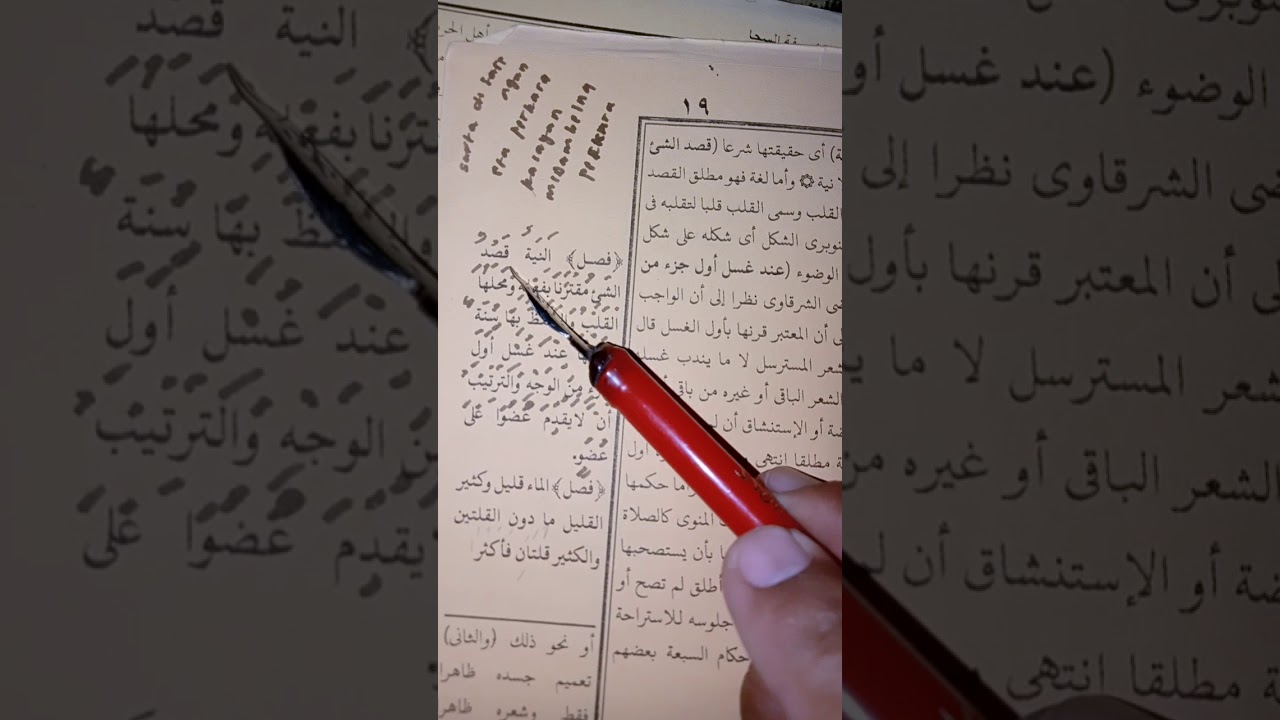 أهل الحر
فة السحا
serta di
ngan
perkara
barengan
migambeling
perkara
١٩
﴿فصل﴾ النِّيَّةُ قَصْدُ
الشَّئِ مُقْتَرِنًا بِفِعْلِهِ وَمَحَلُّهَا
القَلْبُ بِهَا سُنَّةٌ
عِنْدَ غَسْلِ أَوَّلِ
مِنَ الوَجْهِ وَالتَّرْتِيْبُ
أَنْ لَايُقَدِّمَ عُضْوًا عَلَى
عُضْوٍ.
﴿فصل﴾ الماء قليل وكثير
القليل ما دون القلتين
والكثير قلتان فأكثر
أو نحو ذلك (والثانى)
تعميم جسده ظاهرا
فقط وشعره ظاهر
ة) أى حقيقتها شرعا (قصد الشئ
لا نية ۞ وأما لغة فهو مطلق القصد
القلب وسمى القلب قلبا لتقلبه فى
نوبرى الشكل أى شكله على شكل
الوضوء (عند غسل أول جزء من
ضى الشرقاوى نظرا إلى أن الواجب
لى أن المعتبر قرنها بأول الغسل قال
شعر المسترسل لا ما يندب غسله
الشعر الباقى أو غيره من باقى
ضة أو الإستنشاق أن لم
ة مطلقا انتهى اول
وأما حكمها
المنوى كالصلاة
ا بأن يستصحبها
أطلق لم تصح أو
جلوسه للاستراحة
حكام السبعة بعضهم